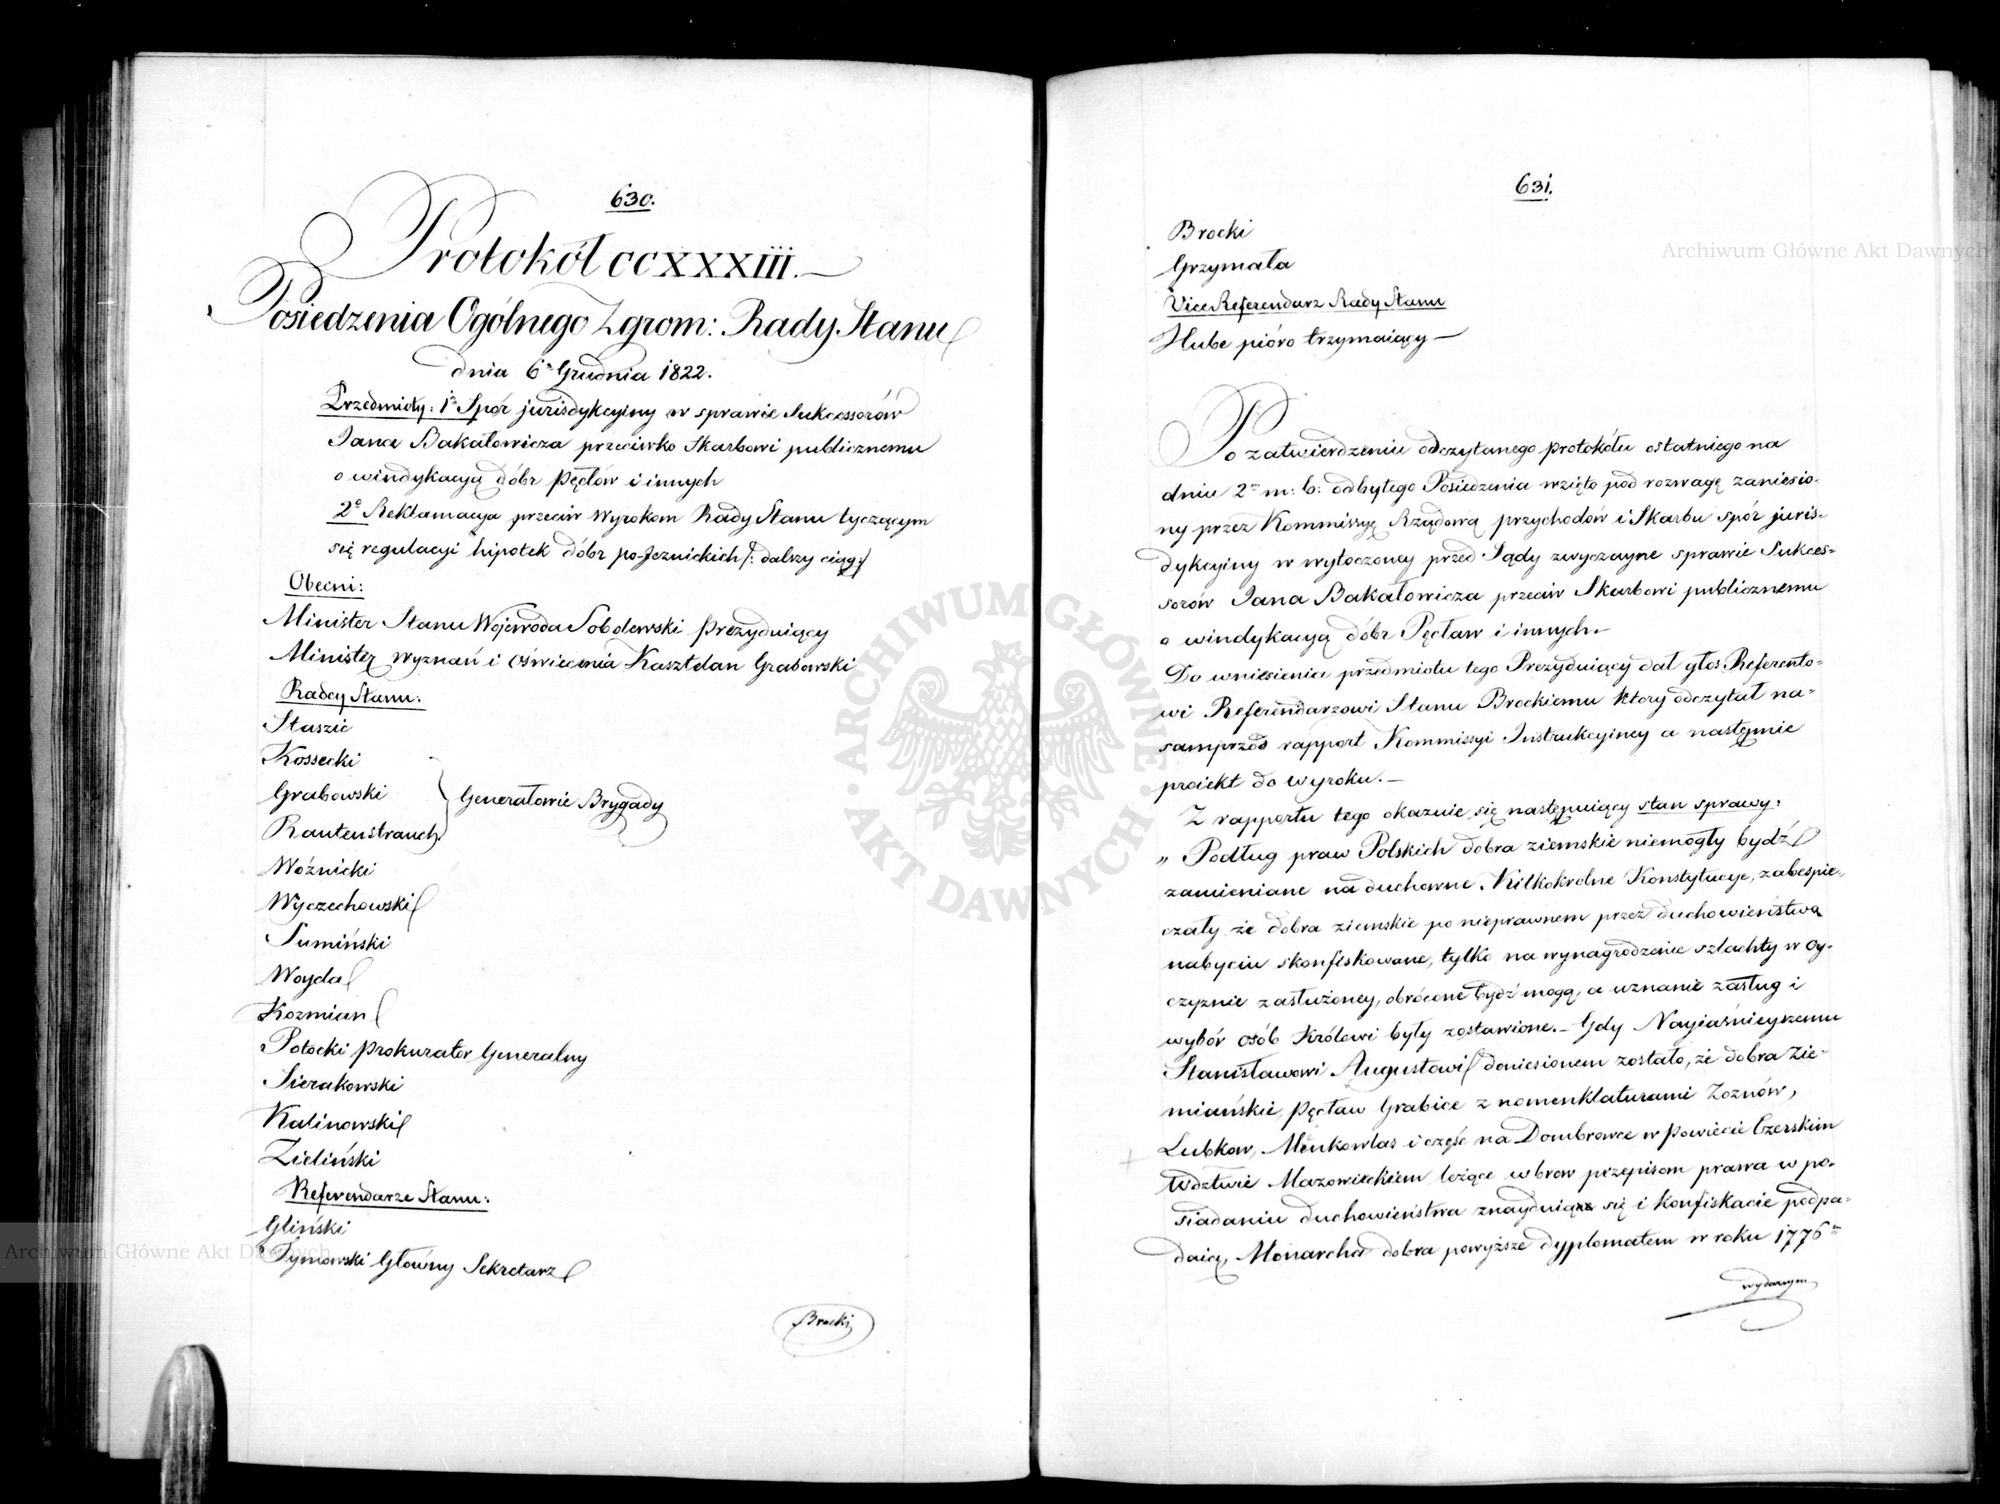 630.
Protokół CCXXXIII.
Posiedzenia Ogólnego Zgrom: Rady Stanu
dnia 6º Grudnia 1822.
Przedmioty: 1º Spór jurisdykcyiny w sprawie Sukcessorów
Jana Bakałowicza przeciwko Skarbowi publicznemu
o windykacyą dóbr Pęcłów i innych
2º Reklamacya przeciw Wyrokom Rady Stanu tyczącym
się regulacyi hipotek dóbr po-Jeznickich /: dalszy ciąg :/
Obecni:
Minister Stanu Wojewoda Sobolewski Prezyduiący
Ministeę Wyznań i Oświecenia Kasztelan Grabowski
Radcy Stanu:
Staszic
Kossecki
Grabowski
Generałowie Brygady
Rautenstrauch
Woźnicki
Wyczechowski
Sumiński
Woyda
Kozmian
Potocki Prokurator Generalny
Sierakowski
Kalinowski
Zieliński
Referendarze Stanu:
Gliński
Tymowski Główny Sekretarz
Brocki
631.
Brocki
Grzymała
Vice Referendarz Rady Stanu
Hube pióro trzymaiący —
Po zatwierdzeniu odczytanego protokółu ostatniego na
dniu 2º m: b: odbytego Posiedzenia wzięto pod rozwagę zaniesio-
ny przez Kommissyę Rządową przychodów i Skarbu spór juris-
dykcyiny w wytoczoney przed Sądy zwyczayne sprawie Sukces-
sorów Jana Bakałowicza przeciw Skarbowi publicznemu
o windykacyą dóbr Pęcław i innych.—
Do wniesienia przedmiotu tego Prezyduiący dał głos Referento-
wi Referendarzowi Stanu Brockiemu który odczytał na-
samprzód rapport Kommissyi Instrukcyiney a następnie
proiekt do wyroku.—
Z rapportu tego okazuie się następuiący stan sprawy:
„ Podług praw Polskich dobra ziemskie niemogły bydź
zamieniane na duchowne. Kilkokrolne Konstytucye, zabespie-
czały że dobra ziemskie po nieprawnem przez duchowieństwa
nabyciu skonfiskowane, tylko na wynagrodzenie szlachty w Oy-
czyznie zasłużoney, obrócone bydź mogą, a uznanie zasług i
wybór osób Królowi były zostawione.— Gdy Nayiaśnieyszemu
Stanisławowi Augustowi doniesionem zostało, że dobra Zie-
miańskie, Pęcław Grabice z nomenklaturami Zoznów,
Lubkow, Menkowlas i część na Dombrowce w Powiecie Czerskim
Wdztwie Mazowieckiem leżące wbrew przepisom prawa w po-
siadaniu duchowieństwa znayduią się i Konfiskacie podpa-
daią, Monarcha dobra powyższe dyplomatem w roku 1776º
wydanym
Archiwum Główne Akt Dawnych
Archiwum Główne Akt Dawnych
ARCHIWUM GŁÓWNE AKT DAWNYCH